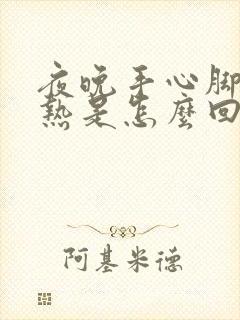 夜晚手心脚
熱是怎麼回
阿基米德